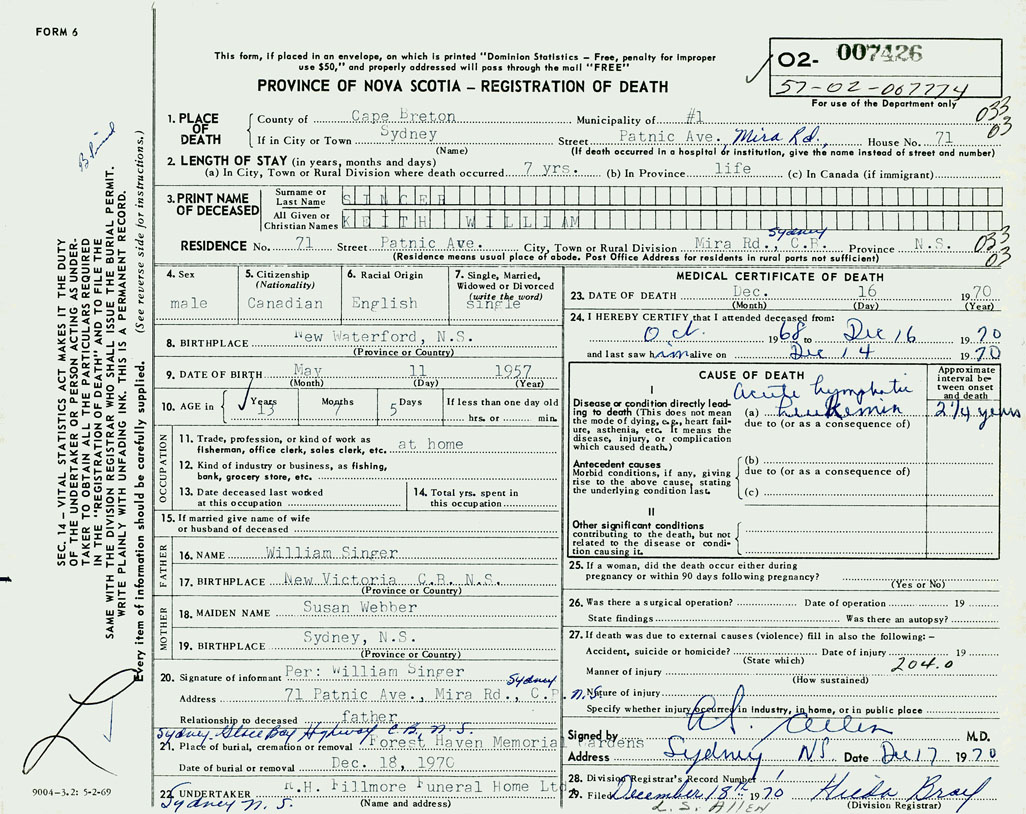 FORM 6
This form, if placed in an envelope, on which is printed "Dominion Statistics – Free, penalty for improper
use $50," and properly addressed will pass through the mail "FREE"
PROVINCE OF NOVA SCOTIA – REGISTRATION OF DEATH
02- 007426
57-02-007774
For use of the Department only
033
03
1. PLACE OF DEATH
County of Cape Breton Municipality of #1
If in City or Town Sydney Street Patnic Ave. Mira Rd., House No. 71
(Name) (If death occurred in a hospital or institution, give the name instead of street and number)
2. LENGTH OF STAY (in years, months and days)
(a) In City, Town or Rural Division where death occurred 7 yrs. (b) In Province life (c) In Canada (if immigrant)
3. PRINT NAME OF DECEASED
Surname or Last Name SINGER
All Given or Christian Names KEITH WILLIAM
Sydney
RESIDENCE No. 71 Street Patnic Ave. City, Town or Rural Division Mira Rd., C.B. Province N.S.
033
03
(Residence means usual place of abode. Post Office Address for residents in rural parts not sufficient)
4. Sex
male
5. Citizenship
(Nationality)
Canadian
6. Racial Origin
English
7. Single, Married,
Widowed or Divorced
(write the word)
single
8. BIRTHPLACE New Waterford, N.S.
(Province or Country)
9. DATE OF BIRTH May 11 1957
(Month) (Day) (Year)
10. AGE in Years 13 Months 7 Days 5 If less than one day old
hrs. or min.
OCCUPATION
11. Trade, profession, or kind of work as
fisherman, office clerk, sales clerk, etc. at home
12. Kind of industry or business, as fishing,
bank, grocery store, etc.
13. Date deceased last worked
at this occupation
14. Total yrs. spent in
this occupation
15. If married give name of wife
or husband of deceased
FATHER
16. NAME William Singer
17. BIRTHPLACE New Victoria C.B. N.S.
(Province or Country)
MOTHER
18. MAIDEN NAME Susan Webber
19. BIRTHPLACE Sydney, N.S.
(Province or Country)
20. Signature of informant Per: William Singer
Sydney
Address 71 Patnic Ave., Mira Rd., C.B. N.S.
Relationship to deceased father
Sydney Glace Bay Highway C.B. N.S.
21. Place of burial, cremation or removal Forest Haven Memorial Gardens
Date of burial or removal Dec. 18, 1970
22. UNDERTAKER R.H. Fillmore Funeral Home Ltd
Sydney N.S. (Name and address)
MEDICAL CERTIFICATE OF DEATH
23. DATE OF DEATH Dec. 16 1970
(Month) (Day) (Year)
24. I HEREBY CERTIFY that I attended deceased from:
Oct. 1968 to Dec 16 1970
and last saw him alive on Dec 14 1970
CAUSE OF DEATH
Approximate
interval be-
tween onset
and death
I
Disease or condition directly lead-
ing to death (This does not mean
the mode of dying, e.g., heart fail-
ure, asthenia, etc. It means the
disease, injury, or complication
which caused death.)
Acute lymphatic
(a) leukemia 2 1/4 years
due to (or as a consequence of)
Antecedent causes
Morbid conditions, if any, giving
rise to the above cause, stating
the underlying condition last.
(b)
due to (or as a consequence of)
(c)
II
Other significant conditions
contributing to the death, but not
related to the disease or condi-
tion causing it.
25. If a woman, did the death occur either during
pregnancy or within 90 days following pregnancy?
(Yes or No)
26. Was there a surgical operation? Date of operation 19
State findings Was there an autopsy?
27. If death was due to external causes (violence) fill in also the following: –
Accident, suicide or homicide? Date of injury 19
(State which) 204.0
Manner of injury
(How sustained)
Nature of injury
Specify whether injury occurred in Industry, in home, or in public place
Signed by M.D.
Address Sydney NS Date Dec 17 1970
28. Division Registrar's Record Number 1
29. Filed December 18th 1970 Hilda Bray
L. S. ALLEN (Division Registrar)
SEC. 14 – VITAL STATISTICS ACT MAKES IT THE DUTY
OF THE UNDERTAKER OR PERSON ACTING AS UNDER-
TAKER TO OBTAIN ALL THE PARTICULARS REQUIRED
IN THE "REGISTRATION OF DEATH" AND TO FILE THE
SAME WITH THE DIVISION REGISTRAR WHO SHALL ISSUE THE BURIAL PERMIT.
WRITE PLAINLY WITH UNFADING INK. THIS IS A PERMANENT RECORD.
Every item of information should be carefully supplied. (See reverse side for instructions.)
9004-3.2: 5-2-69